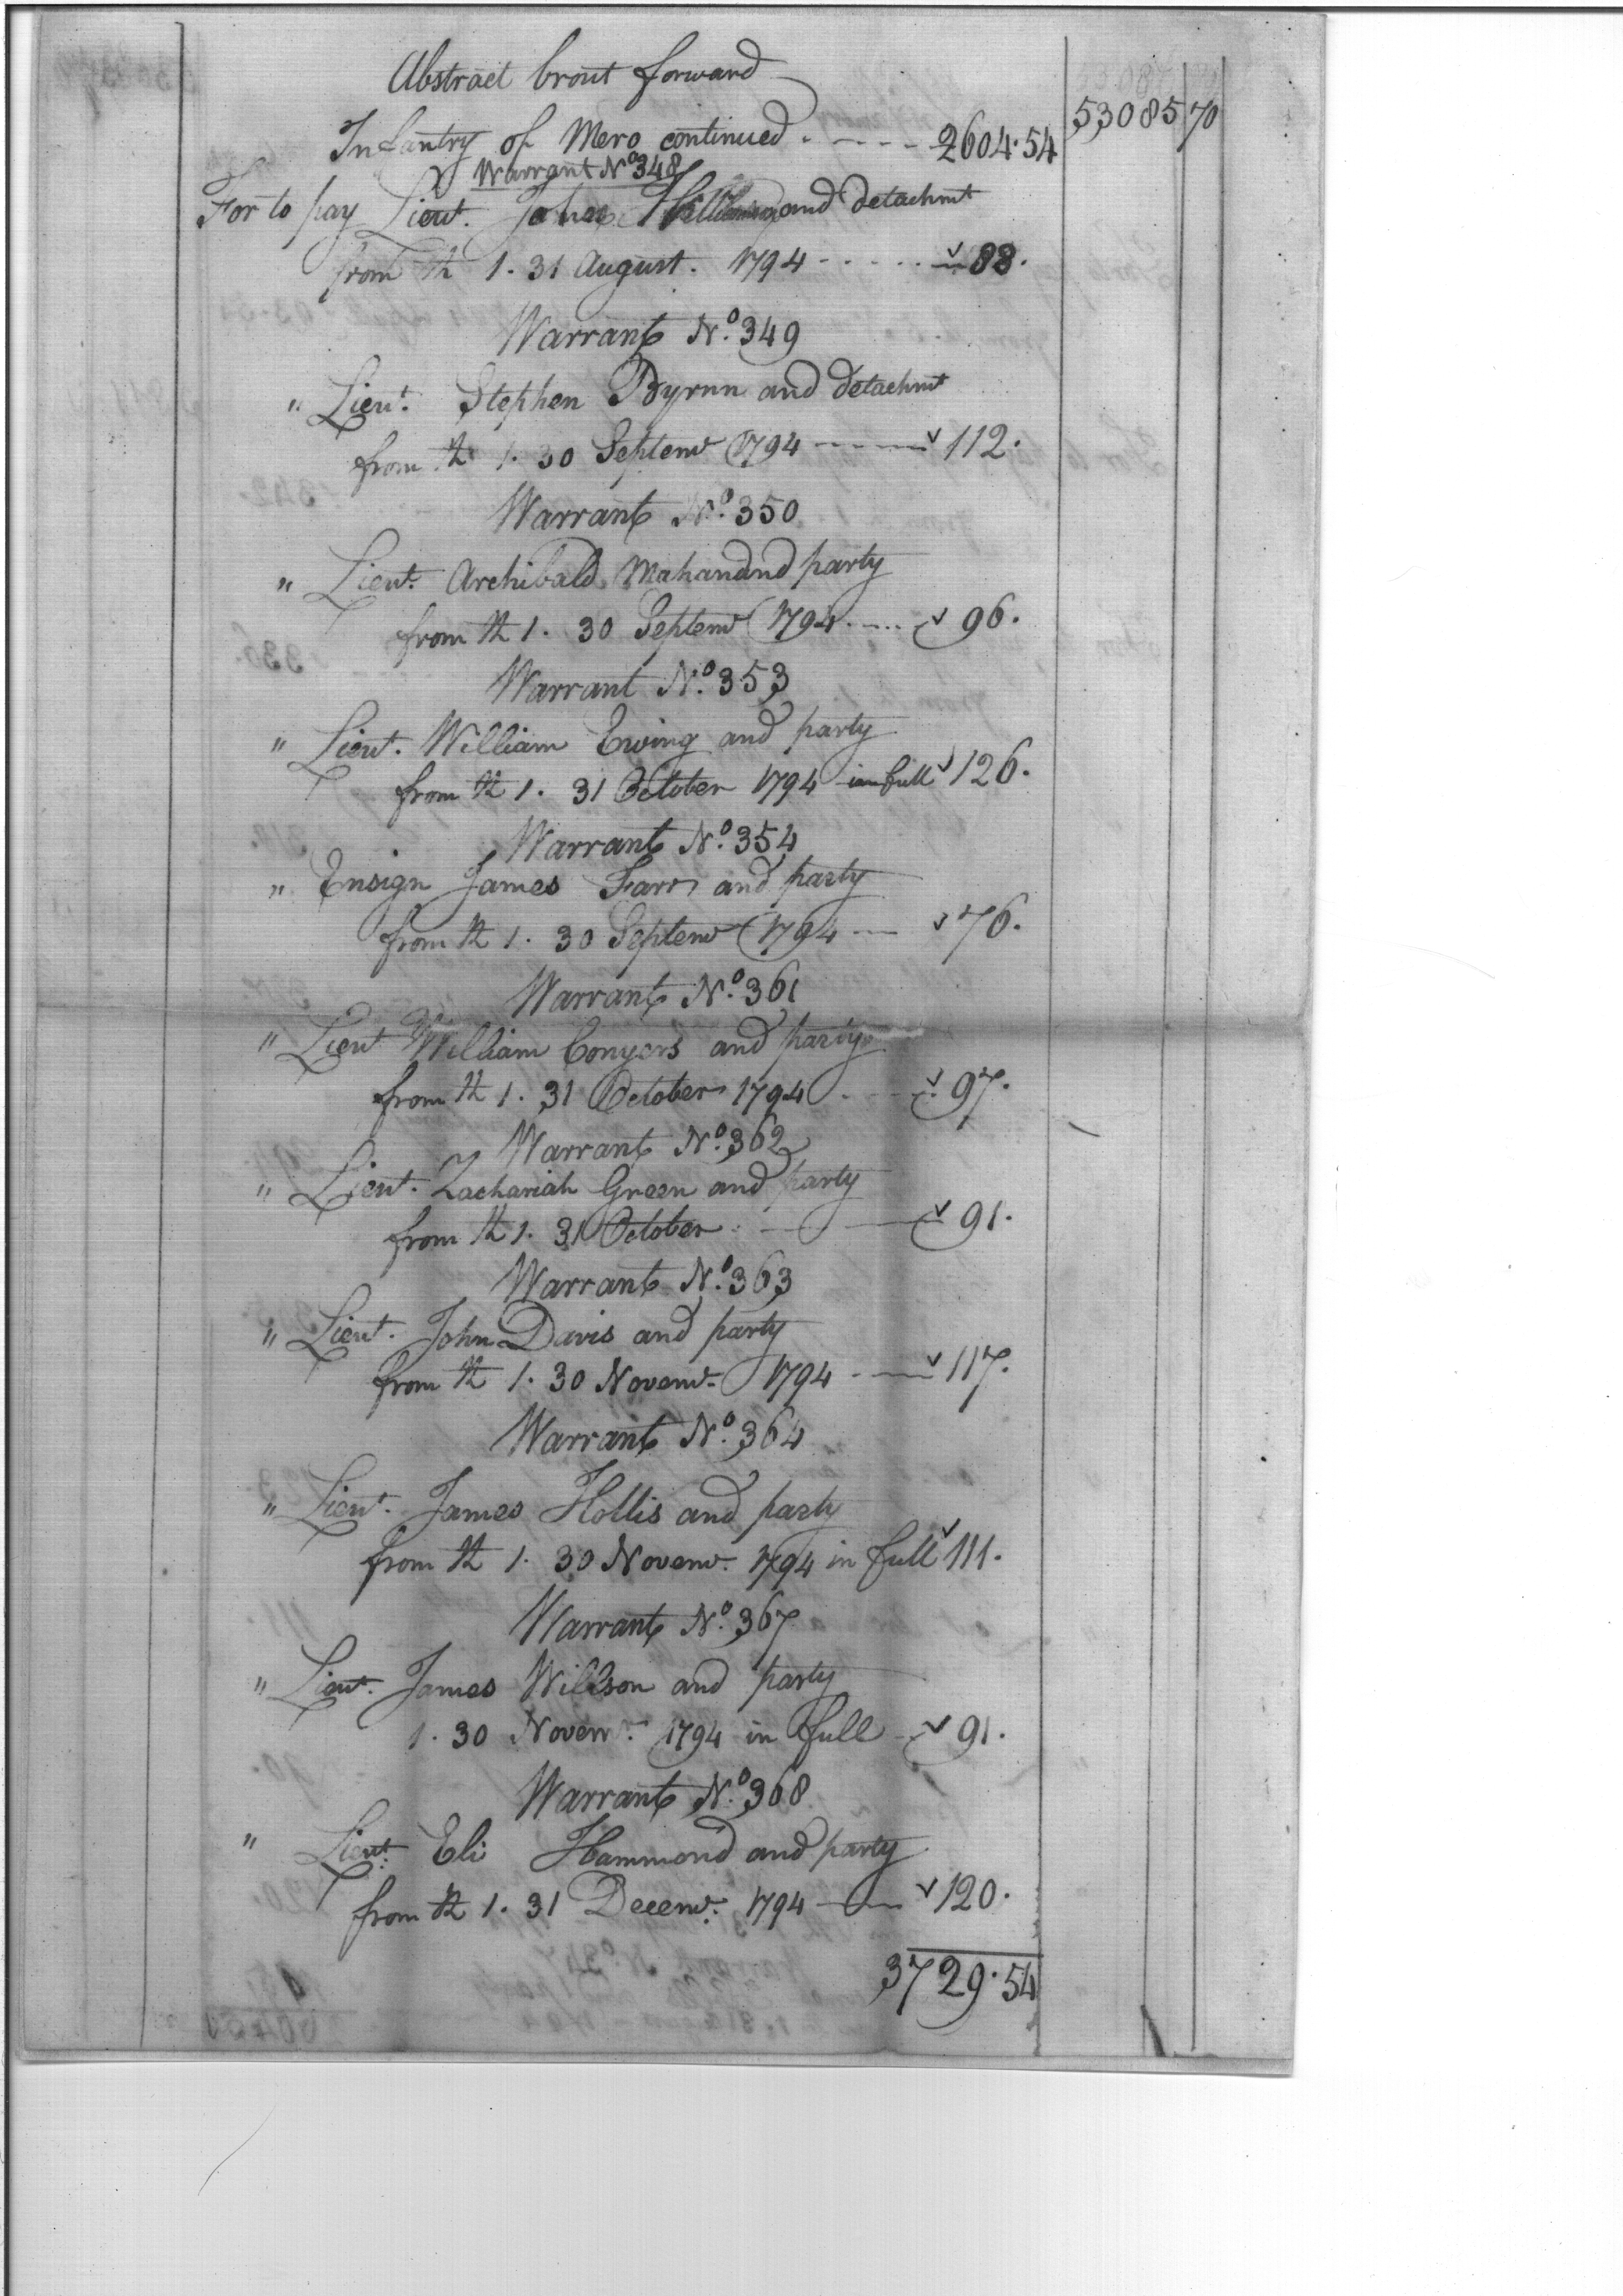 Abstract brout forward
53085 70
Infantry of Mero continued - - - - - 2604.54
Warrant No 348
For to pay Lieut. John and detachmt
from th 1. 31 August. 1794 - - - - - 88.
Warrant No. 349
" Lieut. Stephen Byrnn and detachmt
from th 1. 30 Septemr 1794 - - - - 112.
Warrant No. 350
" Lieut. Archibald Mahan and party
from th 1. 30 Septemr 1794 - - - - 96.
Warrant No. 353
" Lieut. William Ewing and party
from th 1. 31 October 1794 in full 126.
Warrant No. 354
" Ensign James Farr and party
from th 1. 30 Septemr 1794 - - 76.
Warrant No. 361
" Lieut William Conyers and party
from th 1. 31 October 1794 - - - 97.
Warrant No. 362
" Lieut. Zachariah Green and party
from th 1. 31 October - - - 91.
Warrant No. 363
" Lieut. John Davis and party
from th 1. 30 Novemr. 1794 - - - 117.
Warrant No. 364
" Lieut. James Hollis and party
from th 1. 30 Novemr. 1794 in full 111.
Warrant No. 367
" Lieut. James Willson and party
1. 30 Novemr. 1794 in full - 91.
Warrant No. 368
" Lieut. Eli Hammond and party
from th 1. 31 Decemr. 1794 - - 120.
3729.54